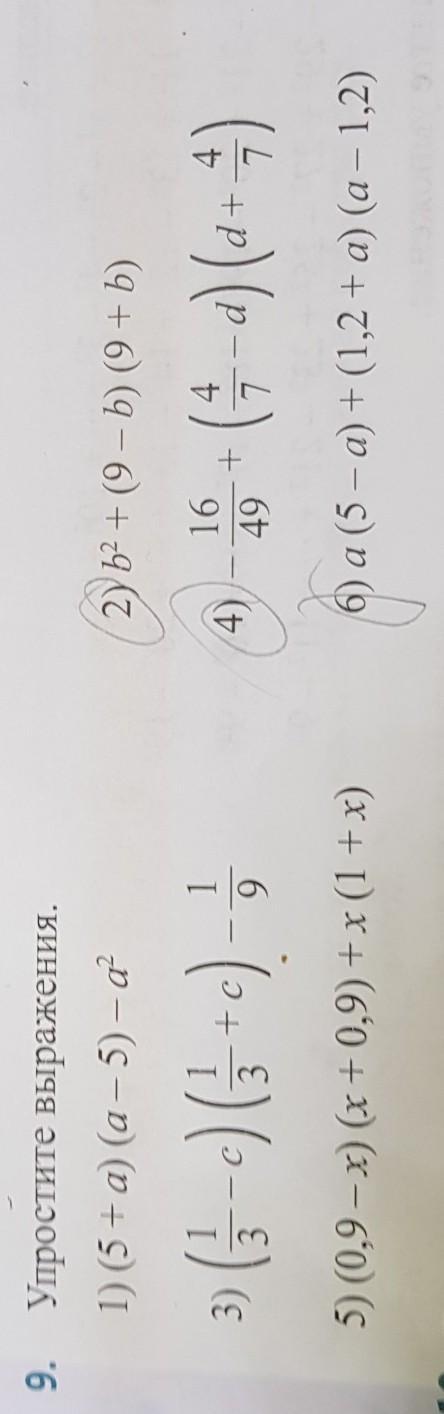 9. Упростите выражения.
1) (5 + a) (a – 5) – a² 2) b² + (9 – b) (9 + b)
3) (1/3 – c) (1/3 + c) – 1/9 4) – 16/49 + (4/7 – d) (d + 4/7)
5) (0,9 – x) (x + 0,9) + x (1 + x) 6) a (5 – a) + (1,2 + a) (a – 1,2)